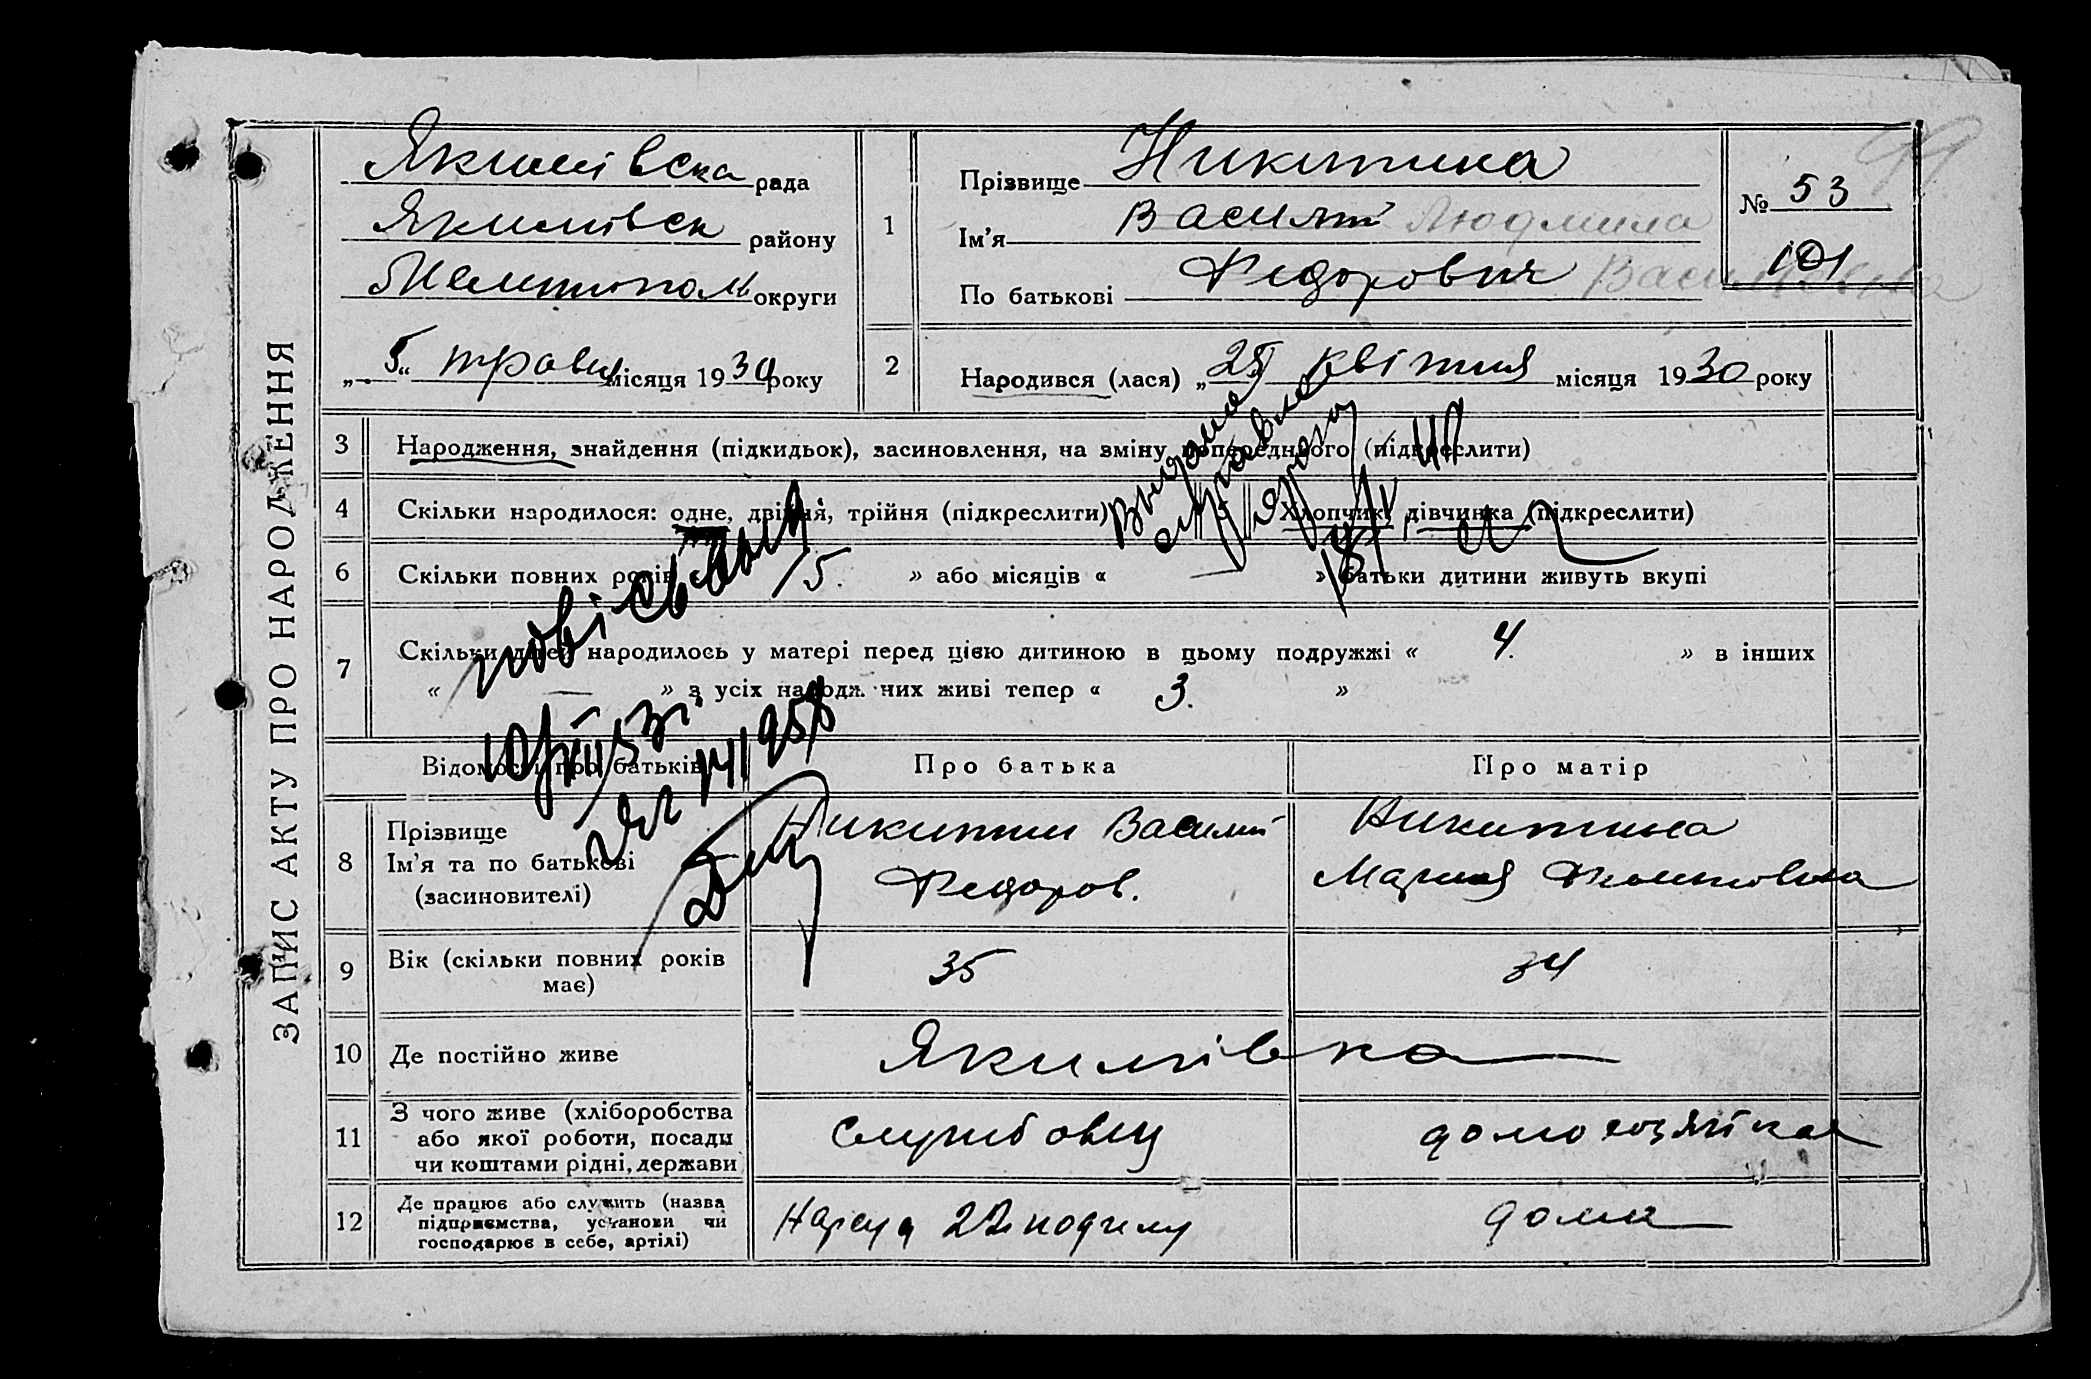 ЗАПИС АКТУ ПРО НАРОДЖЕННЯ
Якимівська рада
Якимівськ району
Мелитополь округи
„5“ травня місяця 1930 року
1
Прізвище Никитина
Ім'я Василий Людмила
По батькові Федорович Васильевна
№ 53
101
99
2
Народився (лася) „25 квітня місяця 1930 року
3 Народження, знайдення (підкидьок), засиновлення, на зміну попереднього (підкреслити)
4 Скільки народилося: одне, двійня, трійня (підкреслити) Хлопчик, дівчинка (підкреслити)
6 Скільки повних років « 15. » або місяців « — » батьки дитини живуть вкупі
7 Скільки дітей народилось у матері перед цією дитиною в цьому подружжі « 4. » в інших
« — » з усіх народж. них живі тепер « 3. »
Выдана
справка
Відомості про батьків Про батька Про матір
8 Прізвище
Ім'я та по батькові
(засиновителі)
Никитин Василий
Федоров.
Никитина
Мария
9 Вік (скільки повних років
має)
35 34
10 Де постійно живе Якимівка
11 З чого живе (хліборобства
або якої роботи, посади
чи коштами рідні, держави
службовец домохозяйка
12 Де працює або служить (назва
підприємства, установи чи
господарює в себе, артілі)
Нарсуд 22
дома